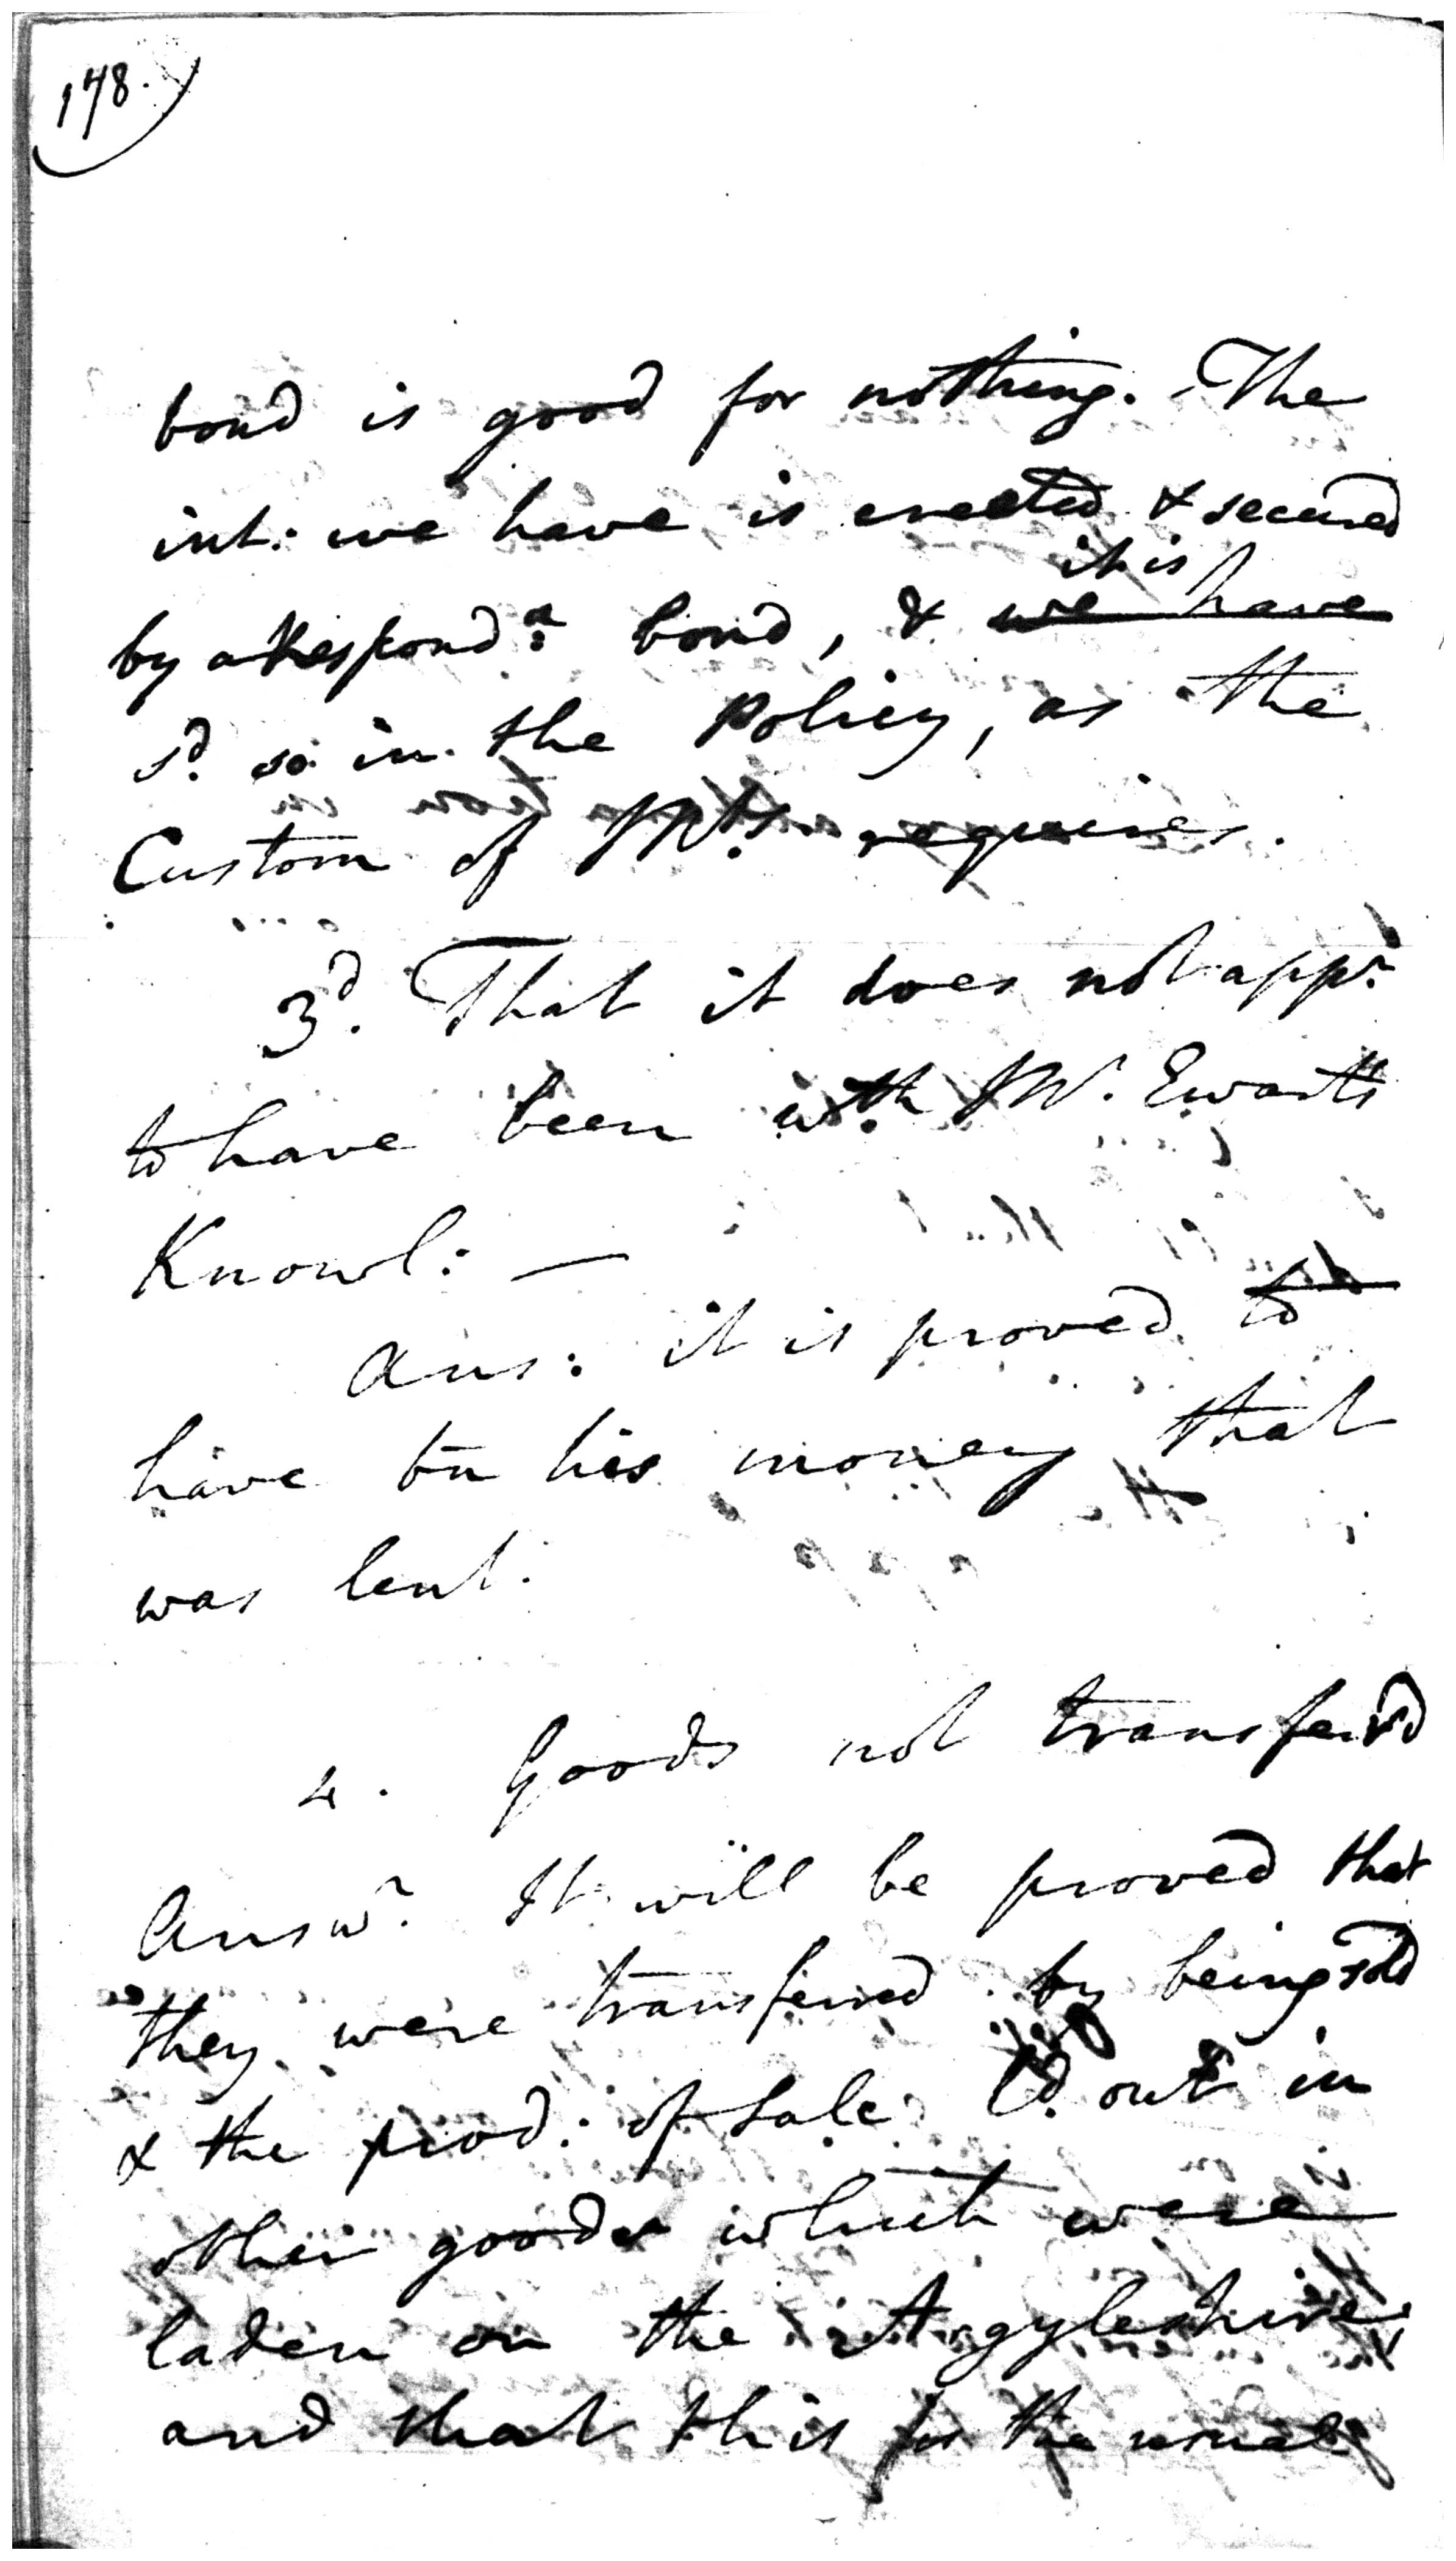 178.
bond is good for nothing. The
int: we have is created & secured
it is
by a Respond.a bond, & we have
s.d so in the Policy, as the
Custom of M.ts requires.
3.d That it does not app.r
to have been w.th Mr. Ewarts
Knowl: —
Ans: it is proved to
have bn his money that
was lent.
4. Goods not transferr'd
Answ.r It will be proved that
they were transferred by being sold
& the prod: of Sale l.d out in
other goods which were
laden on the Argyleshire,
and that this is the usual